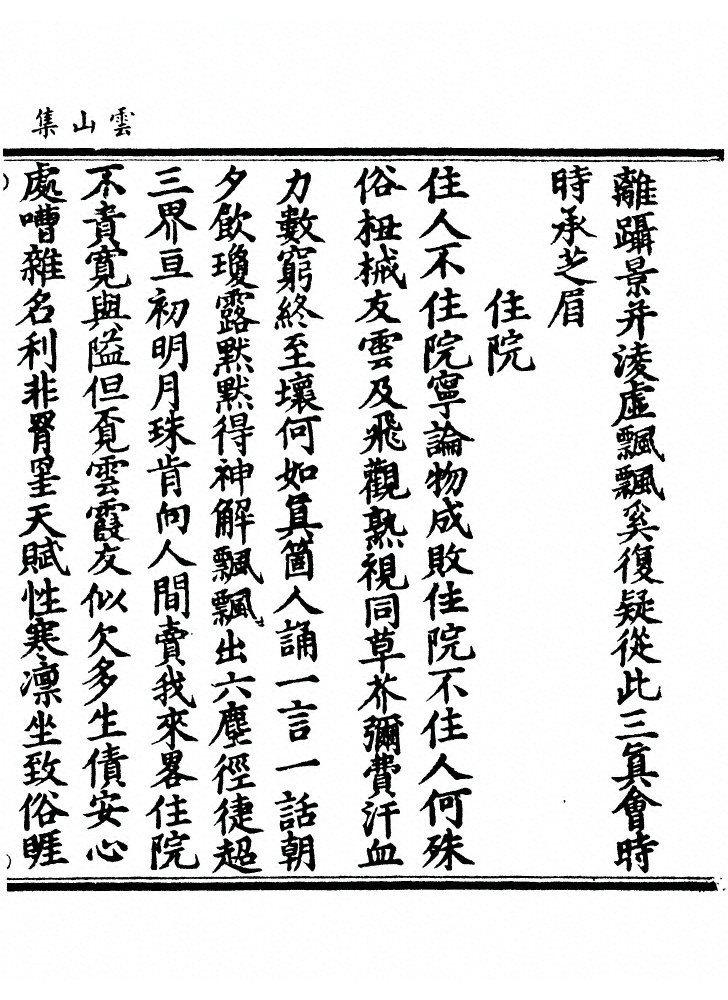 雲山集
離躡景并淩虛飄飄奚復疑從此三眞會時
時承芝眉
住院
住人不住院寧論物成敗住院不住人何殊
俗杻械友雲及飛觀熟視同草芥彌費汗血
力數窮終至壞何如眞箇人誦一言一話朝
夕飲瓊露默默得神解飄飄出六塵徑徤超
三界亘初明月珠肯向人間賣我來畧住院
不責寛與隘但覔雲霞友似欠多生債安心
處嘈雜名利非胥罣天賦性寒凛坐致俗睚